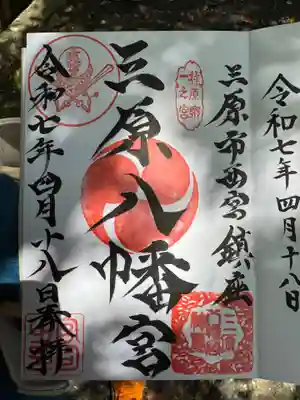 令和七年四月十八日
三原市西宮鎮座
一之宮
三原八幡宮
令和七年四月十八日奉拝